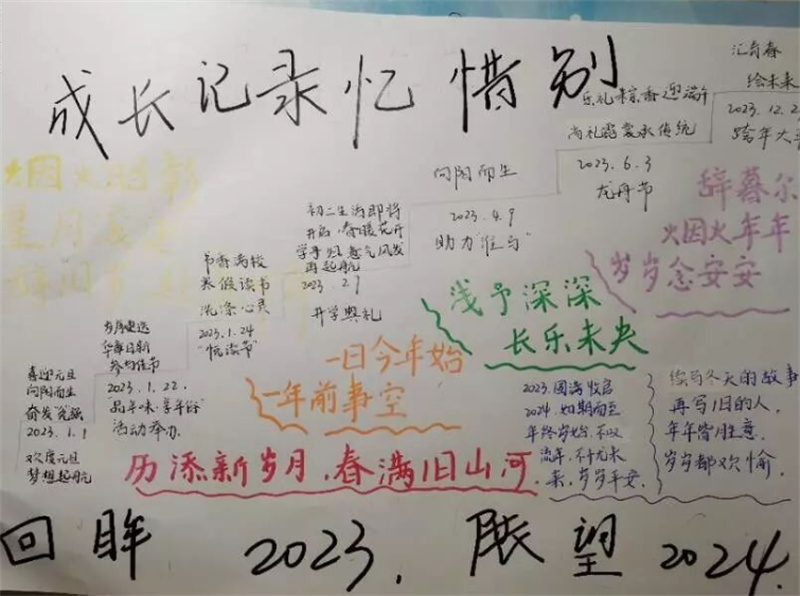 成长记录忆惜别
汇青春
绘未来
2023.12.2
跨年大
乐礼粽香迎端午
尚礼 承传统
2023.6.3
龙舟节
向阳而生
2023.4.9
助力
初二生活即将
开启,春暖花开
学子 意气风发
再起航
2023.2.7
开学典礼
书香高校
寒假读书
洗涤心灵
2023.1.24
"悦读节"
岁月更迭
华章日新
参与佳节
2023.1.22.
"品年味 享年俗"
活动举办.
喜迎元旦
向阳而生
奋发
2023.1.1
欢度元旦
梦想起航
烟火
星月
辞旧
辞暮尔
烟火年年
岁岁念安安
浅予深深
长乐未央
一日今年始
一年前事空
历添新岁月,春满旧山河.
2023.圆满收官
2024.如期而至
年终岁始.不以
流年.不
来,岁岁平安.
续写冬天的故事
再写旧的人,
年年皆胜意.
岁岁都欢愉.
回眸 2023. 展望 2024.